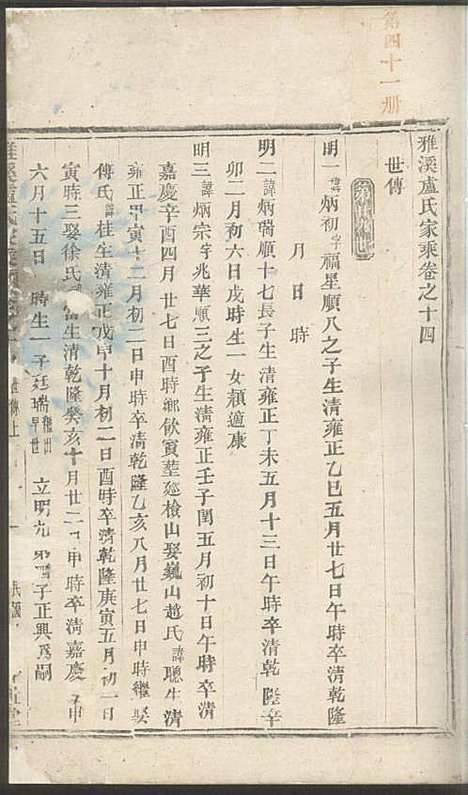 第四十一册
雅溪盧氏家乘卷之十四
世傳
明一諱炳初字福星順八之子生清雍正乙巳五月廿七日午時卒清乾隆
月日時
明二諱炳瑞順十七長子生清雍正丁未五月十三日午時卒清乾隆辛
卯二月初六日戌時生一女頛適康
明三諱炳宗字兆華順三之子生清雍正壬子閏五月初十日午時卒清
嘉慶辛酉四月廿七日酉時鄉飲賓塟延檢山娶巍山趙氏諱聰生清
雍正甲寅十二月初二日申時卒清乾隆乙亥八月廿七日申時繼娶
傅氏諱桂生清雍正戊申十月初一日酉時卒清乾隆庚寅五月初一日
寅時三娶徐氏 生清乾隆癸亥十月廿二日申時卒清嘉慶 申
六月十五日 時生一子廷瑞 早世 立明九 子正興為嗣
世傳上